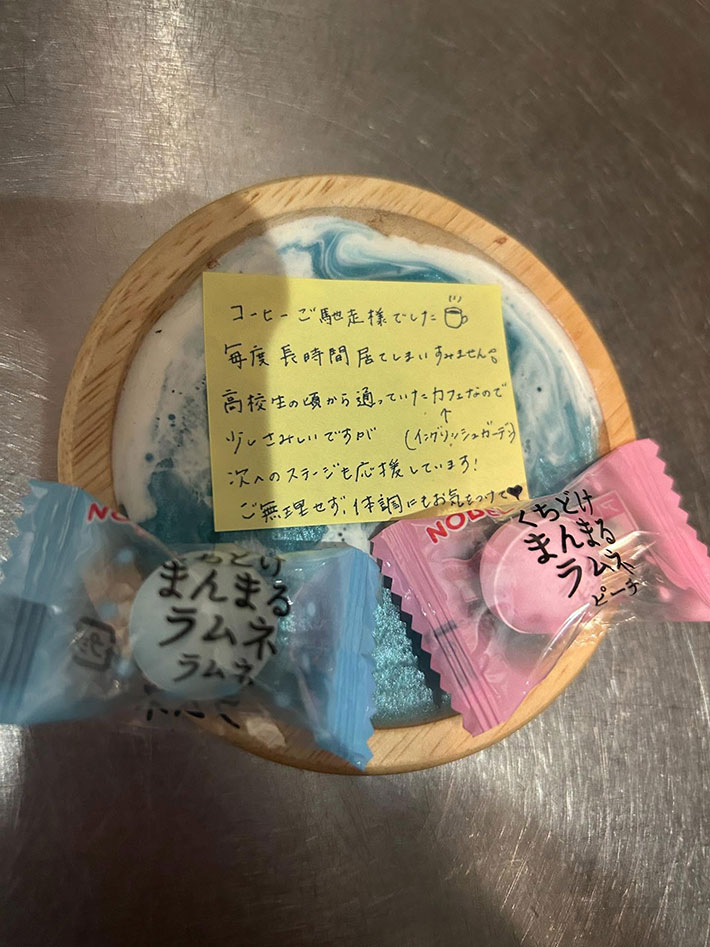 コーヒーご馳走様でした
毎度長時間居てしまいすみません。
高校生の頃から通っていたカフェなので
↑
少しさみしいですが (イングリッシュガーデン)
次へのステージも応援しています!
ご無理せず、体調にもお気をつけて♥
NOB
くちどけ
まんまる
ラムネ
ラムネ
NOBE
くちどけ
まんまる
ラムネ
ピーチ